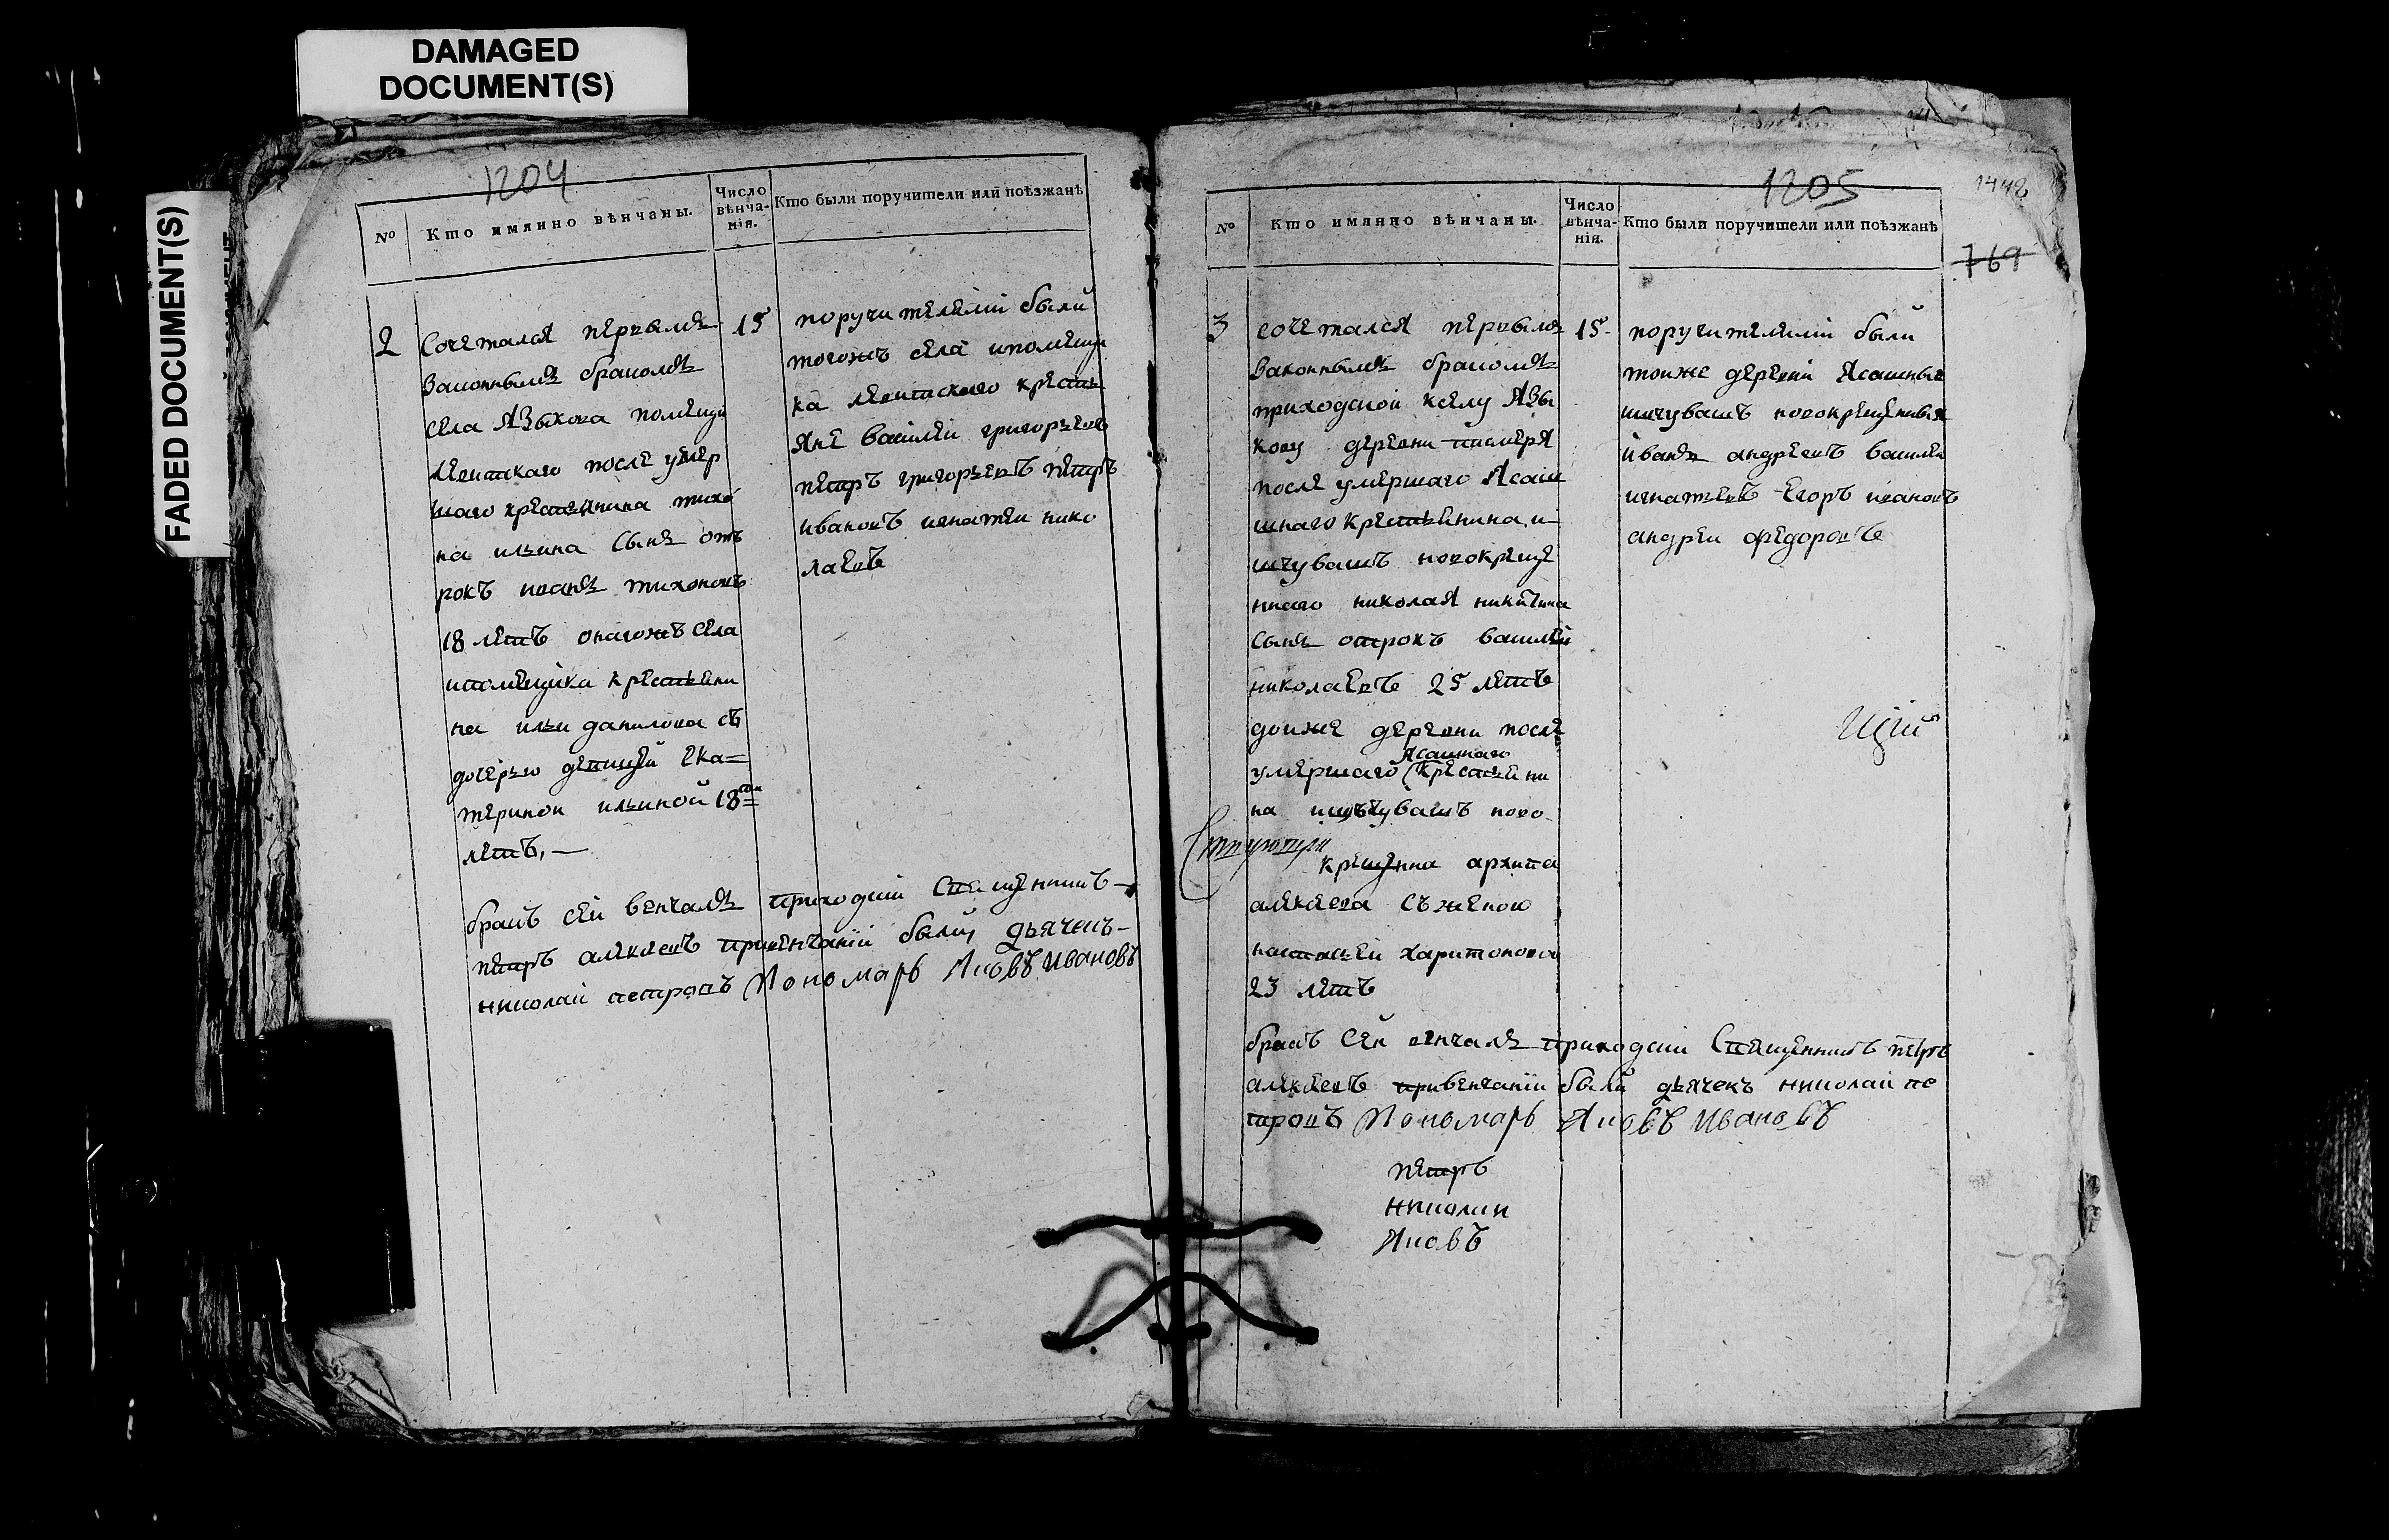 DAMAGED
DOCUMENT(S)
FADED DOCUMENT(S)
1204
№
Кто имянно вѣнчаны.
Число
вѣнча-
нія.
Кто были поручители или поѣзжанѣ
2
Сочетался первымъ
законнымъ бракомъ
села Языкова помещи
после умер
шаго крестьянина тихо
на ильина сынъ отъ
рокъ иванъ тихоновъ
18 летъ онагожъ села
ипомещика крестьяни
на ильи данилова съ
дочерью девицей ека-
териной ильиной 18
летъ, —
15
поручителями были
тогожъ села ипомещи
ка крестья
яне василей григорьевъ
петръ григорьевъ петръ
ивановъ игнатеи нико
лаевъ
бракъ сей венчалъ приходскии священникъ —
петръ алексеевъ привенчании были дьячекъ —
николаи петровъ Пономарь Яковъ Ивановъ
1205
1448
769
№
Кто имянно вѣнчаны.
Число
вѣнча-
нія.
Кто были поручители или поѣзжанѣ
3
сочетался первымъ
законнымъ бракомъ
приходской кселу Язы
кову деревни
после умершаго Ясаш
шнаго крестьянина и
щчувашъ новокреще
ннаго николая никитина
сынъ отрокъ василей
николаевъ 25 летъ
тоиже деревни после
Ясашнаго
умершаго крестьяни
на ищчувашъ ново
крещенна архипа
алексеева съженою
настасьеи харитонова
23 летъ
15.
поручителями были
тоиже деревни Ясашные
ищчувашъ новокрещеныя
иванъ андреевъ василеи
игнатьевъ Егоръ ивановъ
андреи федоровъ
бракъ сей венчалъ приходскии Священникъ петръ
алексеевъ привенчании были дьячекъ николаи пе
тровъ Пономарь Яковъ Ивановъ
петръ
николаи
Яковъ